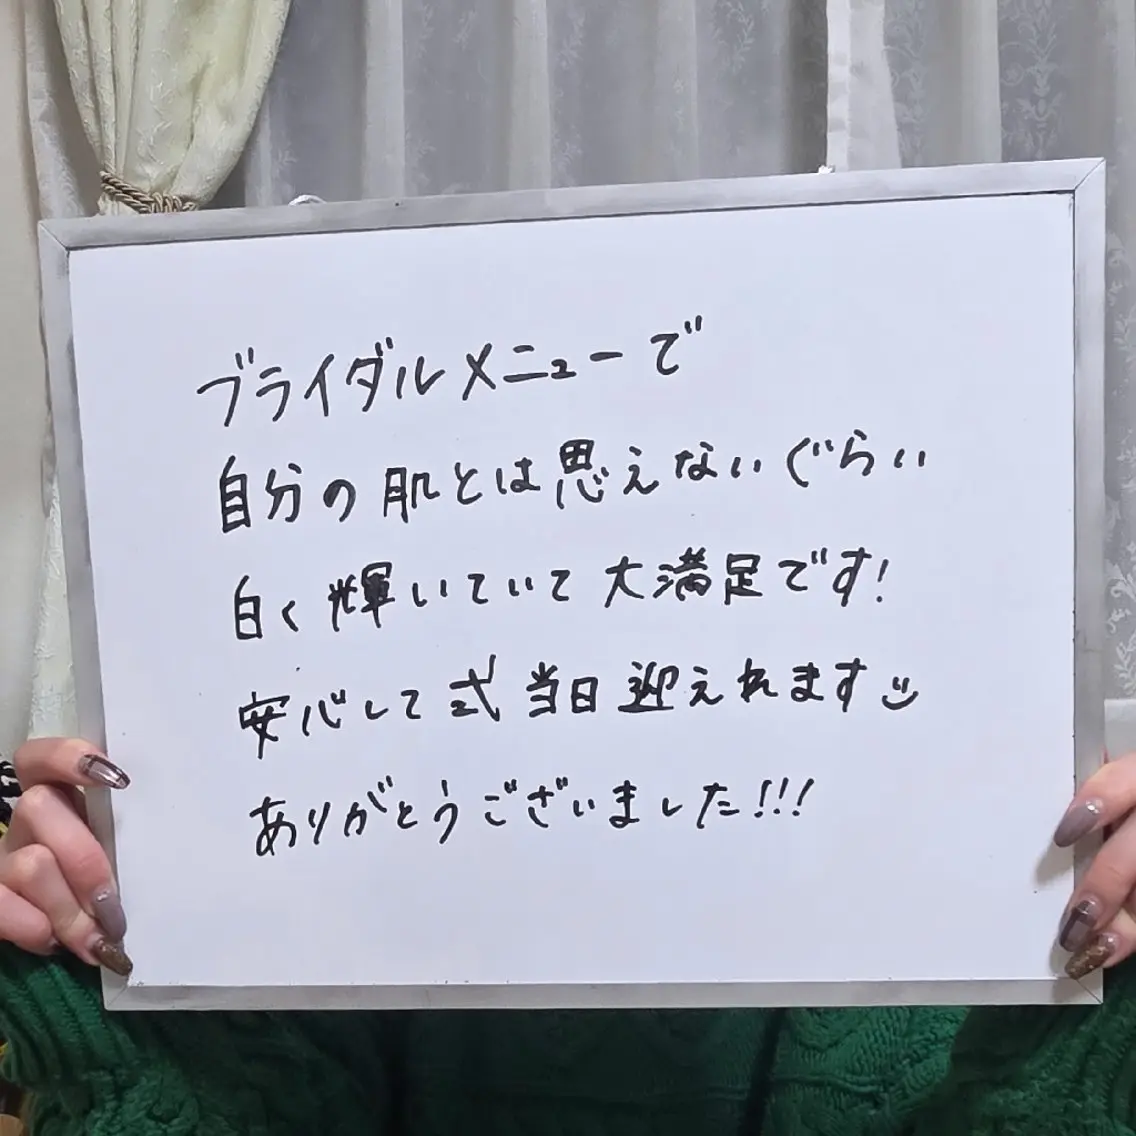 ブライダルメニューで
自分の肌とは思えないぐらい
白く輝いていて大満足です!
安心して式当日迎えれます
ありがとうございました!!!